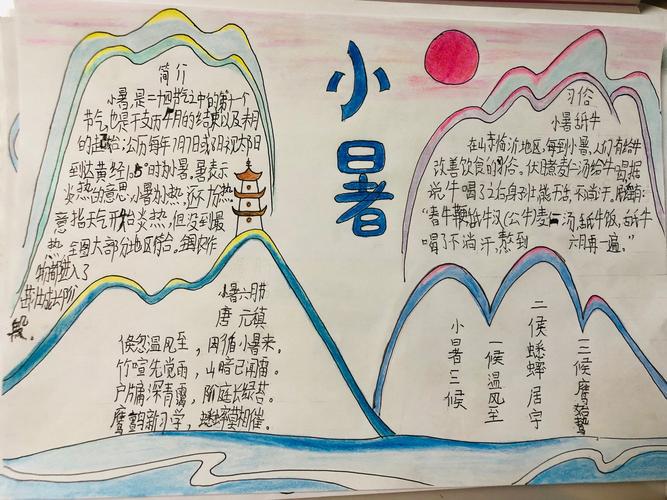 小暑
简介
小暑,是二十四节气之中的第十一个
节气,也是干支历午月的结束以及未月
的起始;公历每年7月7日或8日视太阳
到达黄经105°时为小暑。暑,表示
炎热的意思,小暑为小热,还不十分热
意指天气开始炎热,但没到最
热,全国大部分地区符合。全国农作
物都进入了
茁壮成长阶
段。
习俗
小暑舐牛
在山东临沂地区,每到小暑,人们有给牛
改善饮食的习俗。伏日煮麦仁汤给牛喝,据
说牛喝了之后身子壮,能干活,不淌汗。民谣:
“春牛鞭,舐牛汉(公牛)麦仁汤,舐牛饭,舐牛
喝了不淌汗,熬到 六月再一遍。”
小暑六月节
唐 元稹
倏忽温风至,因循小暑来。
竹喧先觉雨,山暗已闻雷。
户牖深青霭,阶庭长绿苔。
鹰鹯新习学,蟋蟀莫相催。
小暑三候
一候温风至
二候蟋蟀居宇
三候鹰始鸷